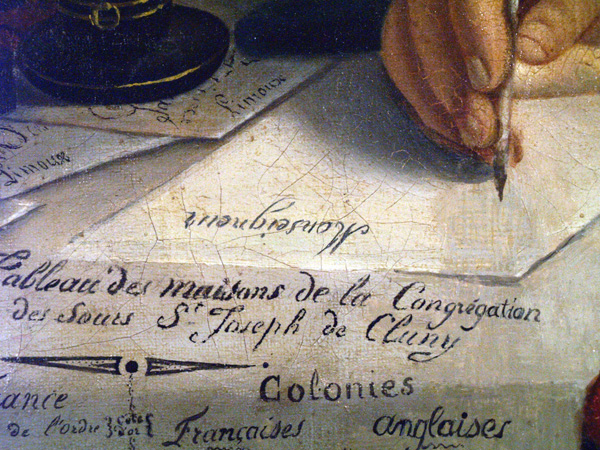 Limoux
Limoux
Monseigneur
Tableau des maisons de la Congrégation
des Sœurs St Joseph de Cluny
Colonies
ance
de l'ordre
Françaises anglaises